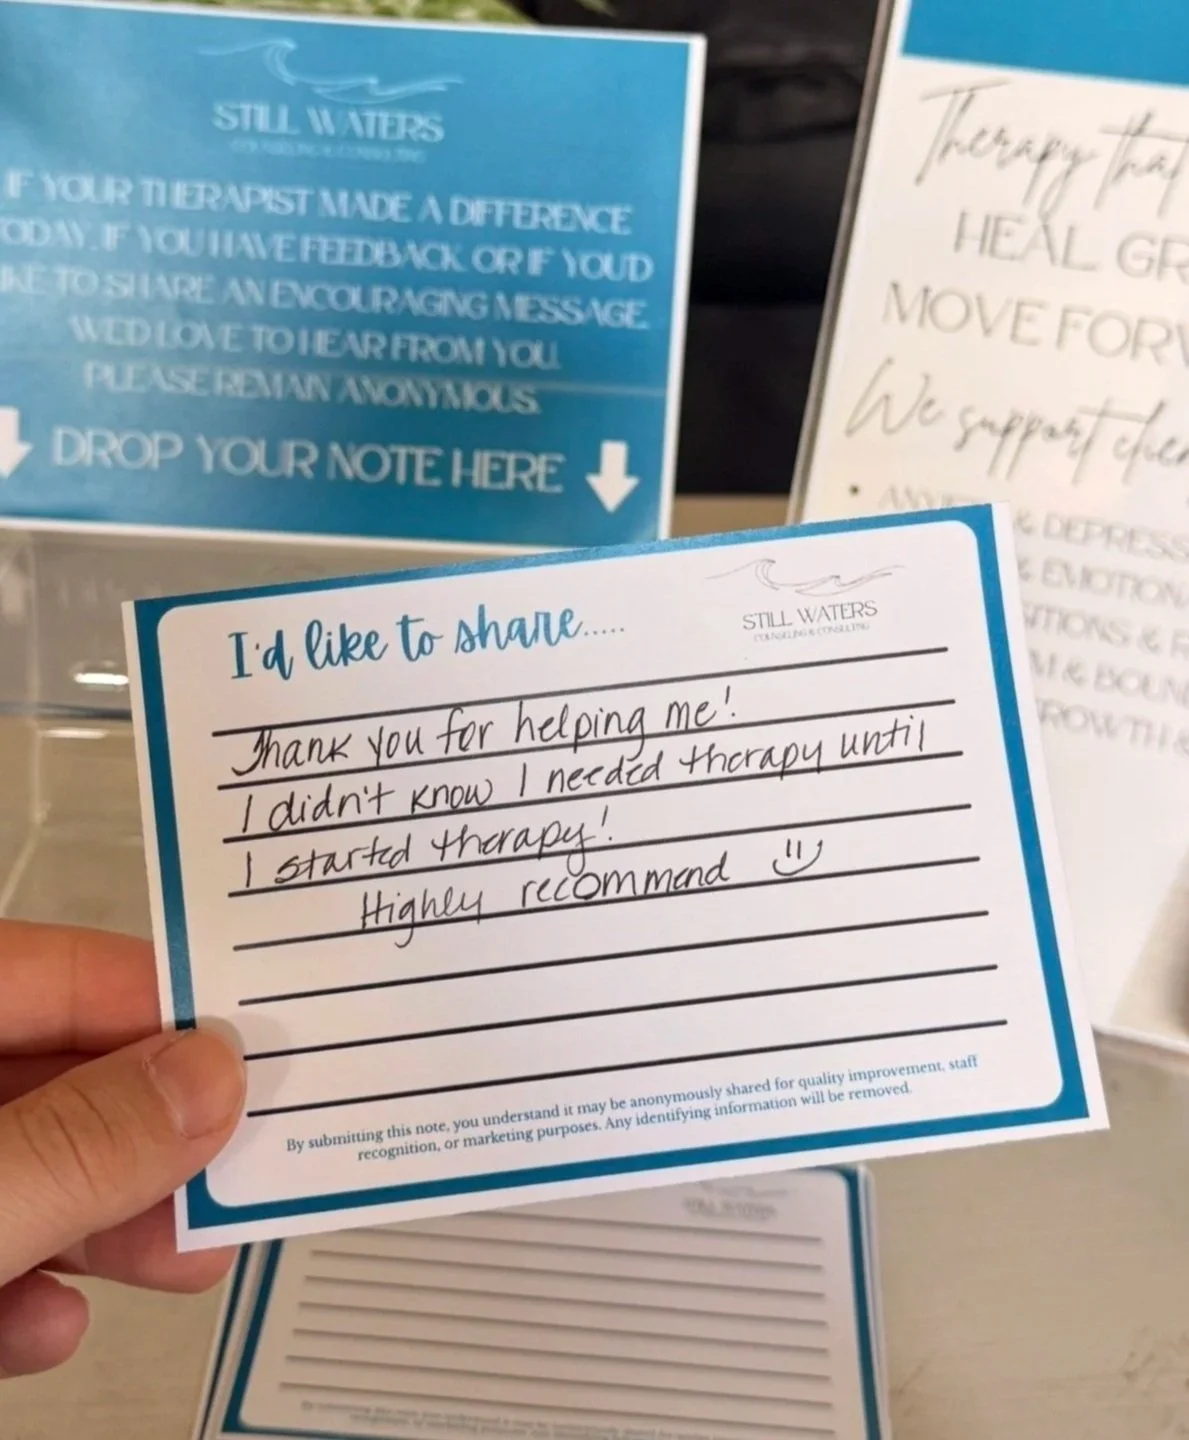 STILL WATERS
COUNSELING & CONSULTING
IF YOUR THERAPIST MADE A DIFFERENCE
TODAY, IF YOU HAVE FEEDBACK, OR IF YOU'D
LIKE TO SHARE AN ENCOURAGING MESSAGE,
WE'D LOVE TO HEAR FROM YOU.
PLEASE REMAIN ANONYMOUS.
DROP YOUR NOTE HERE
Therapy that
HEAL GR
MOVE FORW
We support clie
& DEPRESS
& EMOTION
& R
& BOUN
ROWTH &
I'd like to share.....
STILL WATERS
COUNSELING & CONSULTING
Thank you for helping me!
I didn't know I needed therapy until
I started therapy!
Highly recommend
By submitting this note, you understand it may be anonymously shared for quality improvement, staff
recognition, or marketing purposes. Any identifying information will be removed.